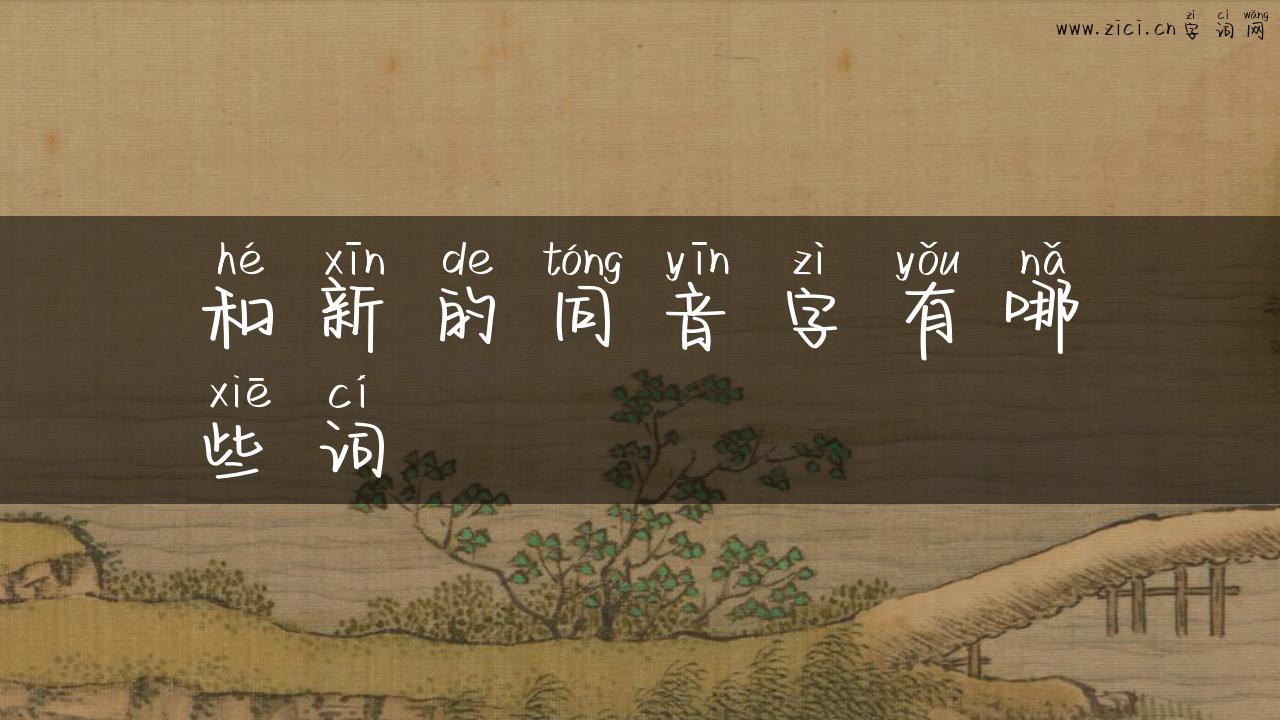 zì cí wǎng
www.zici.cn 字词网
hé xīn de tóng yīn zì yǒu nǎ
和新的同音字有哪
xiē cí
些词